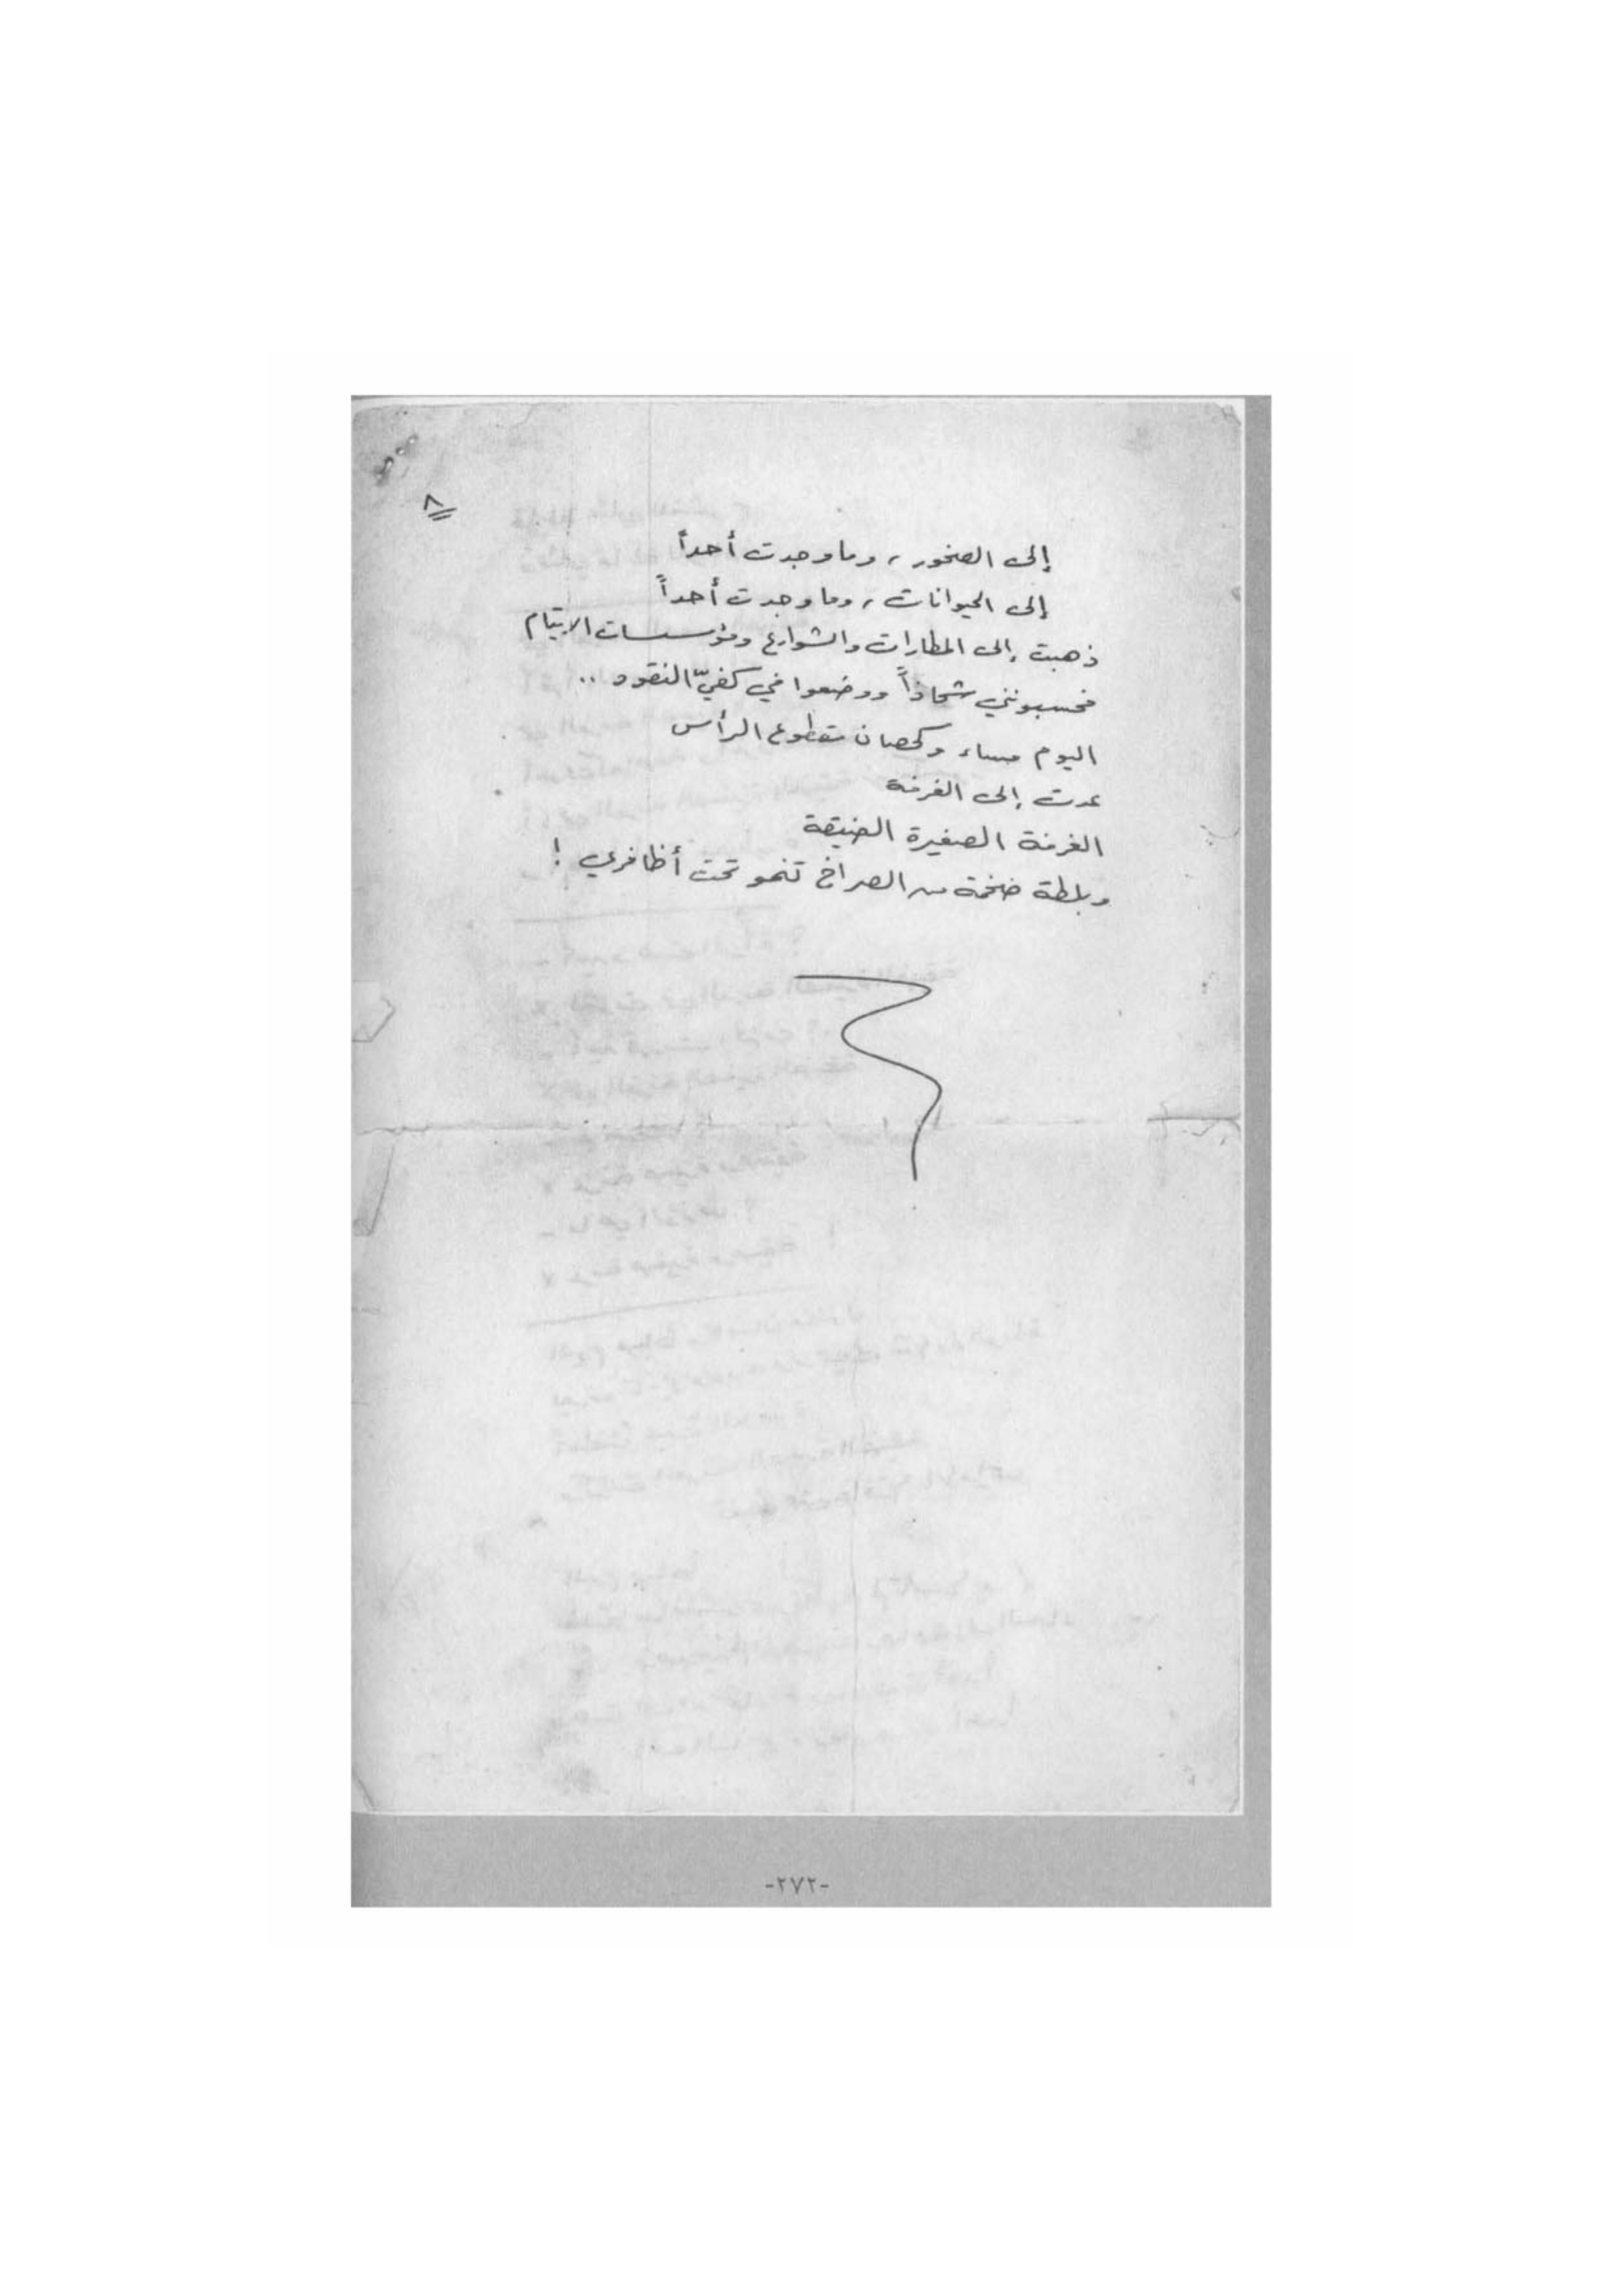 ٨
إلى الصخور، وما وجدت أحداً
إلى الحيوانات، وما وجدت أحداً
ذهبت إلى المطارات والشوارع ومؤسسات الايتام
فحسبونني شحاذاً ووضعوا في كفيّ النقود ..
اليوم مساء وكحصان مقطوع الرأس
عدت إلى الغرفة
الغرفة الصغيرة الضيقة
وبلطة ضخمة من الصراخ تنمو تحت أظافري !
-٢٧٢-